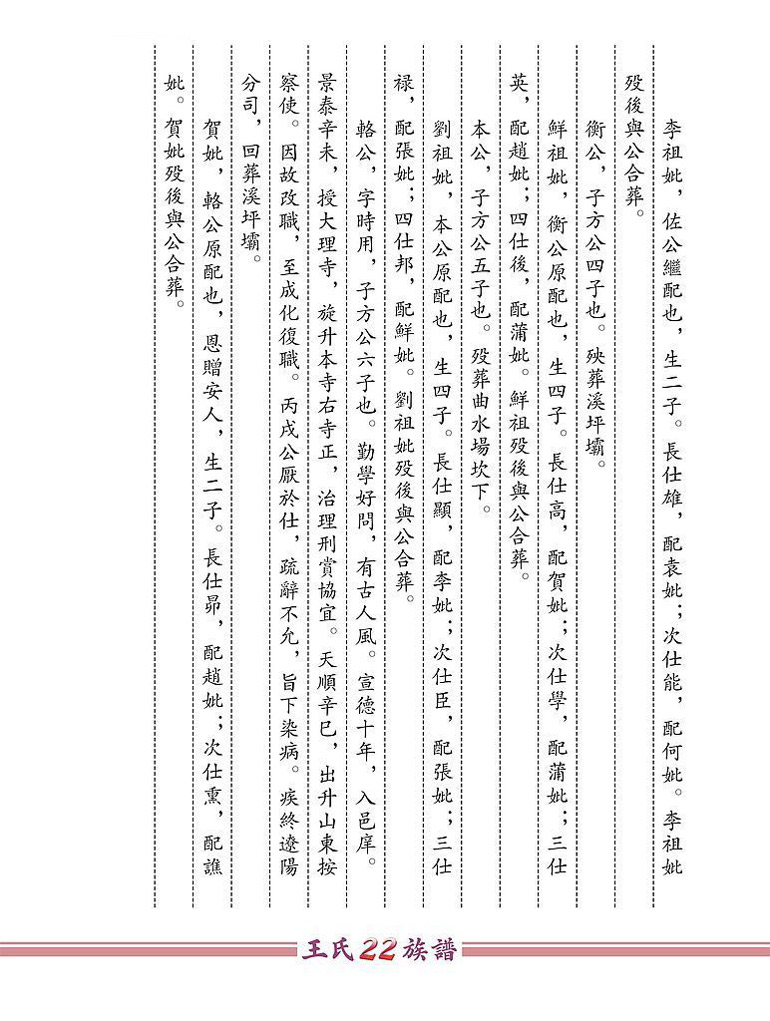 李祖妣，佐公繼配也，生二子。長仕雄，配袁妣；次仕能，配何妣。李祖妣
歿後與公合葬。
衡公，子方公四子也。殁葬溪坪壩。
鮮祖妣，衡公原配也，生四子。長仕高，配賀妣；次仕學，配蒲妣；三仕
英，配趙妣；四仕後，配蒲妣。鮮祖歿後與公合葬。
本公，子方公五子也。歿葬曲水場坎下。
劉祖妣，本公原配也，生四子。長仕顯，配李妣；次仕臣，配張妣；三仕
禄，配張妣；四仕邦，配鮮妣。劉祖妣歿後與公合葬。
輅公，字時用，子方公六子也。勤學好問，有古人風。宣德十年，入邑庠。
景泰辛未，授大理寺，旋升本寺右寺正，治理刑賞協宜。天順辛巳，出升山東按
察使。因故改職，至成化復職。丙戌公厭於仕，疏辭不允，旨下染病。疾終遼陽
分司，回葬溪坪壩。
賀妣，輅公原配也，恩贈安人，生二子。長仕昴，配趙妣；次仕熏，配譙
妣。賀妣歿後與公合葬。
王氏22族譜